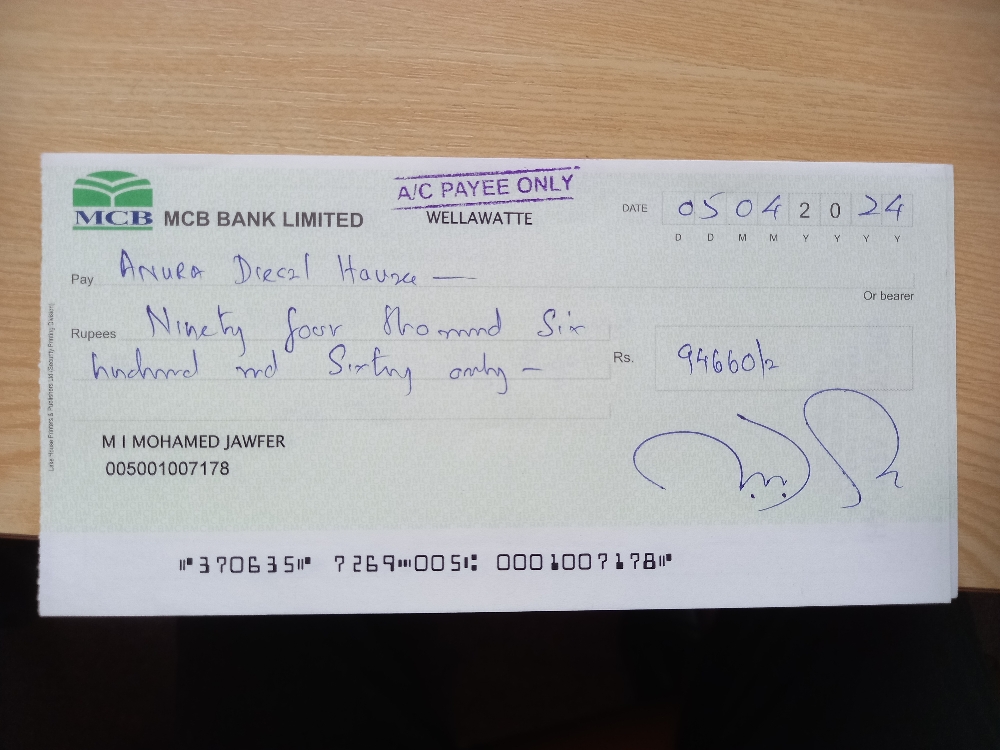 A/C PAYEE ONLY
MCB MCB BANK LIMITED
WELLAWATTE
DATE 05 04 2 0 24
D D M M Y Y Y Y
Pay Anura Diesal House —
Or bearer
Rupees Ninety four thousand Six
hundred and Sixty only —
Rs. 94660/=
M I MOHAMED JAWFER
005001007178
Lake House Printers & Publishers Ltd (Security Printing Division)
⑈370635⑈ 7269⑉005⑆ 0001007178⑈